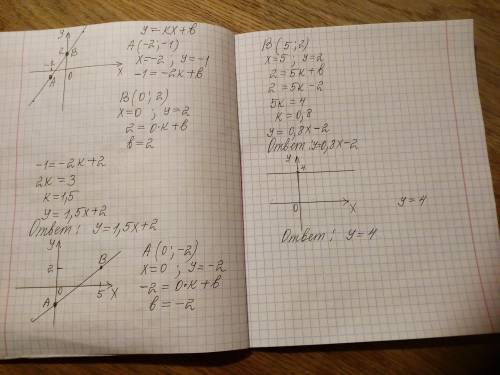 y
2
B
-2
0
x
-1
A
y=kx+в
A(-2;-1)
x=-2; y=-1
-1=-2k+в
B(0;2)
x=0; y=2
2=0·k+в
в=2
-1=-2k+2
2k=3
k=1,5
y=1,5x+2
Ответ: y=1,5x+2
y
2
B
0
5
x
A
A(0;-2)
x=0; y=-2
-2=0·k+в
в=-2
B(5;2)
x=5; y=2
2=5k+в
2=5k-2
5k=4
k=0,8
y=0,8x-2
Ответ: y=0,8x-2
y
4
0
x
y=4
Ответ: y=4